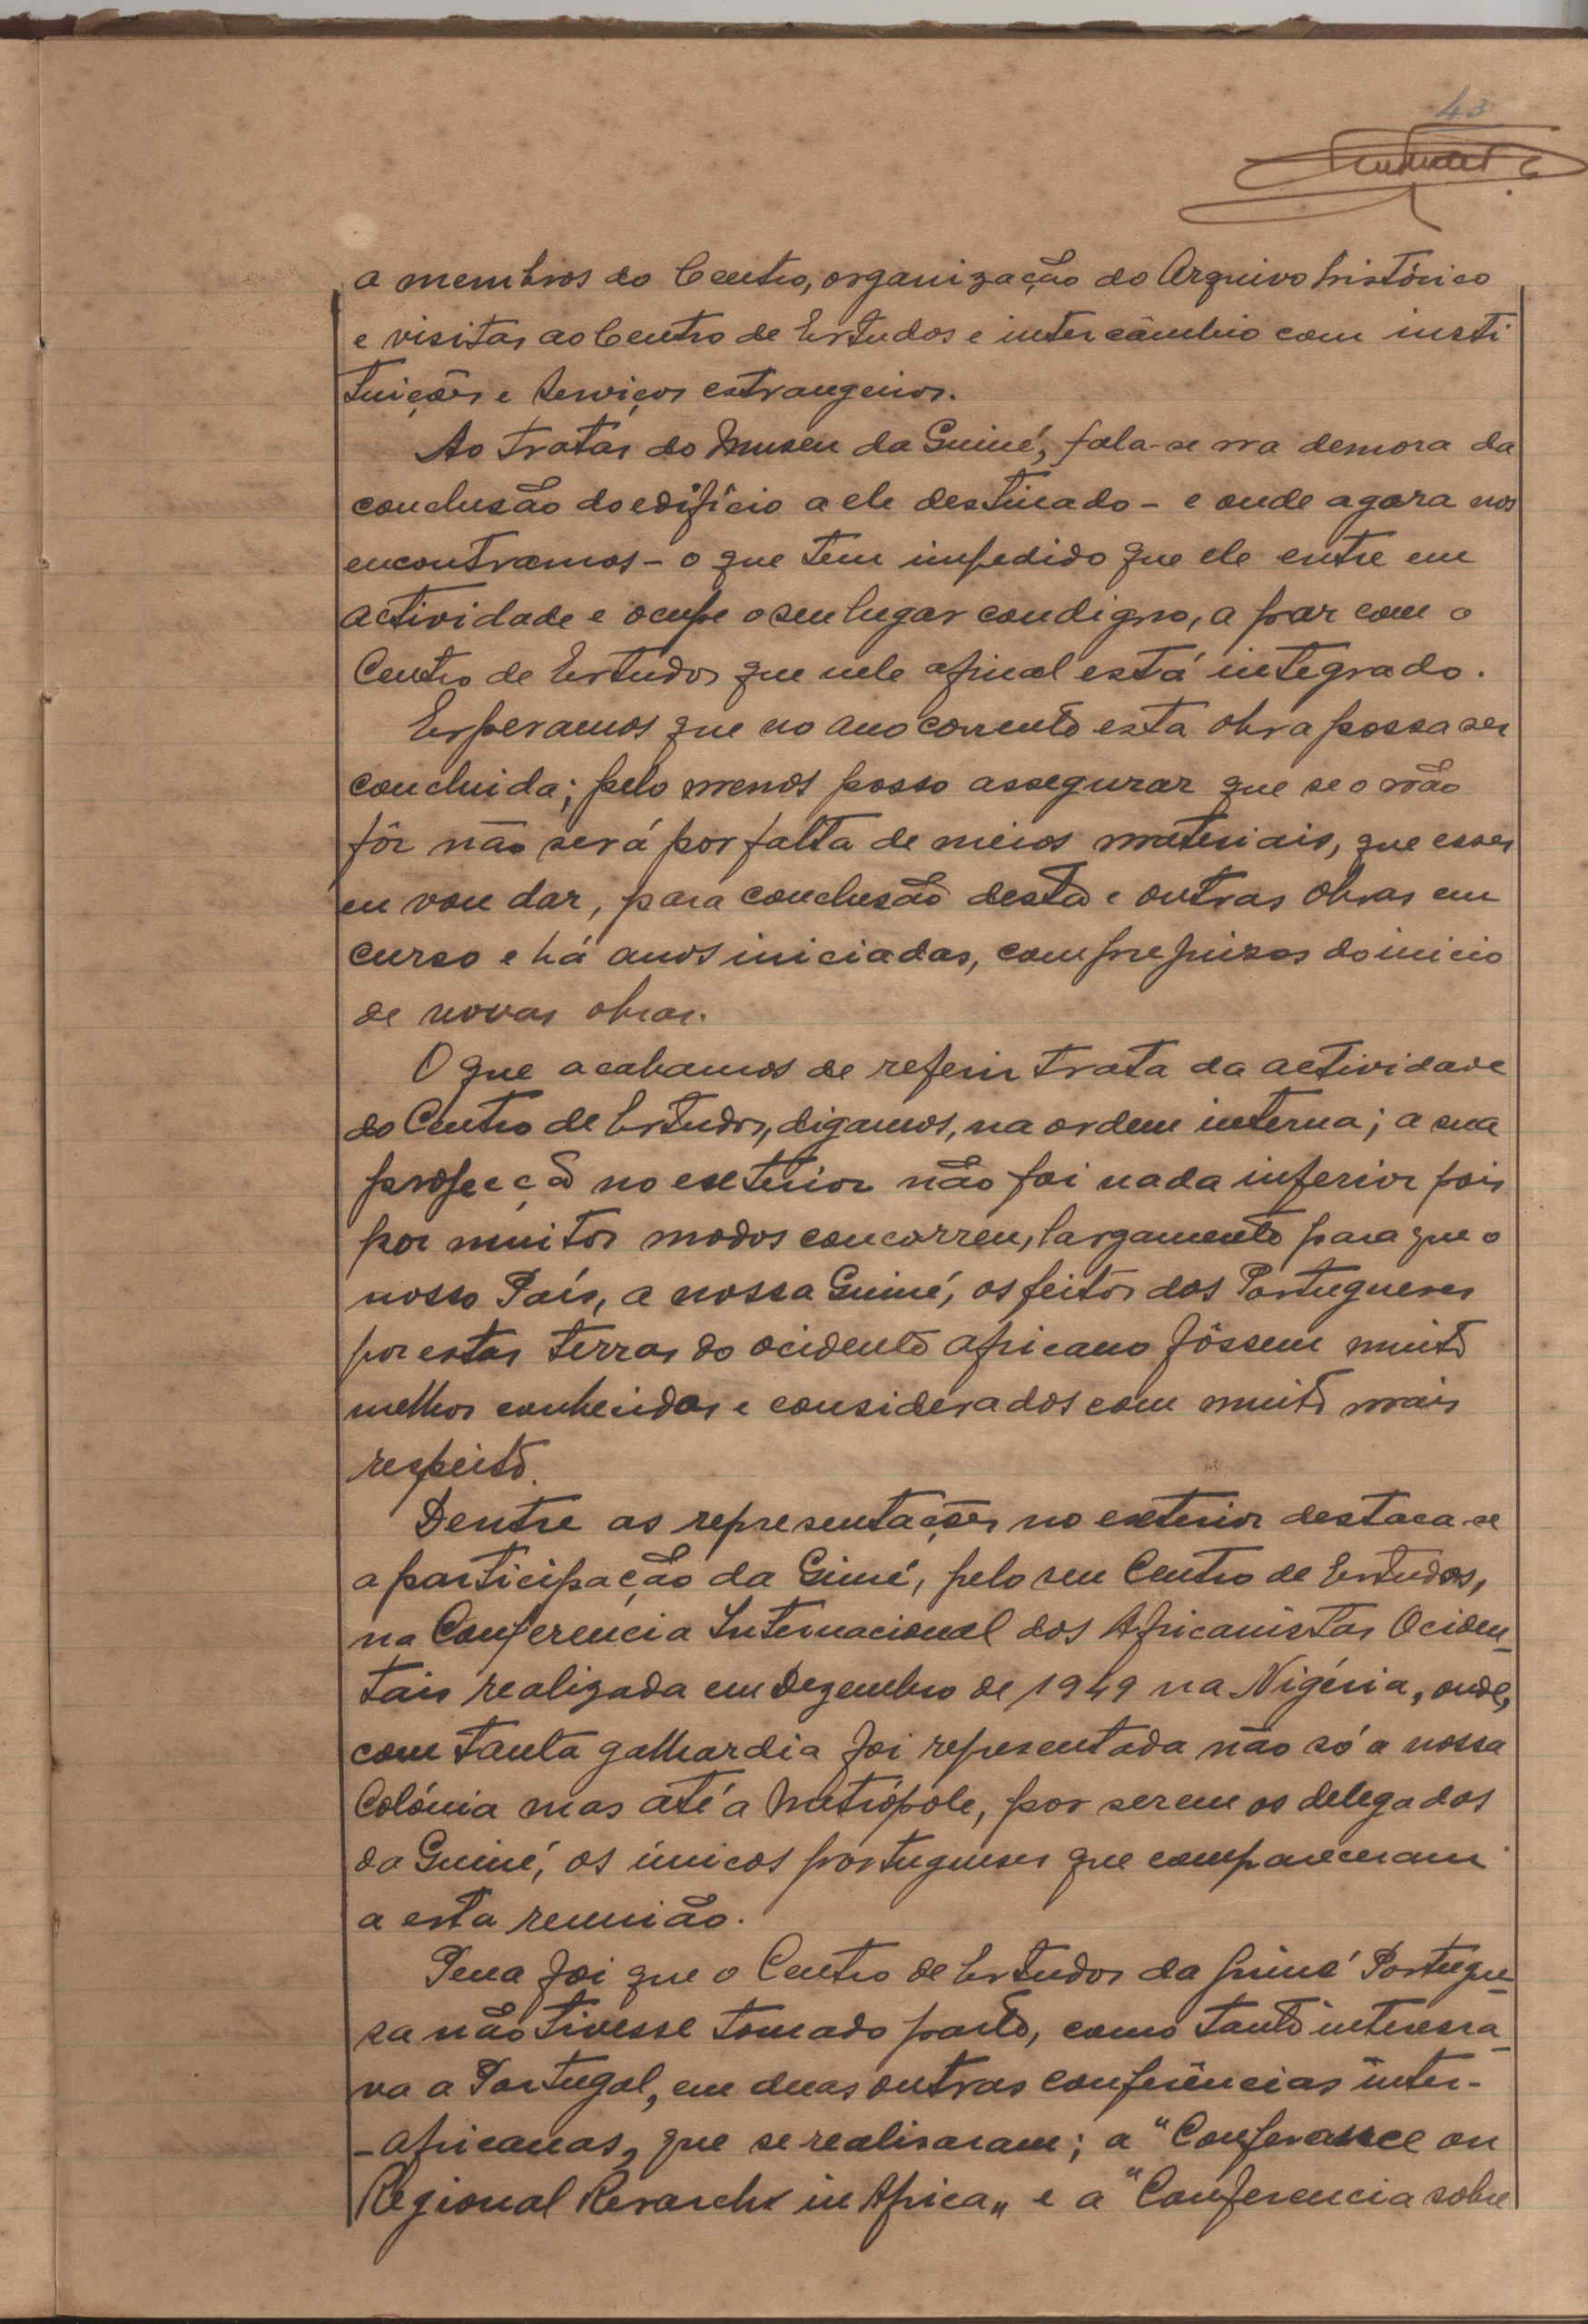 43
a membros do Centro, organização do Arquivo histórico
e visitas ao Centro de Estudos e intercâmbio com insti
tuições e serviços estrangeiros.
Ao tratar do Museu da Guiné, fala-se na demora da
conclusão do edifício a ele destinado - e onde agora nos
encontramos - o que tem impedido que ele entre em
actividade e ocupe o seu lugar condigno, a par com o
Centro de Estudos que nele afinal está integrado.
Esperamos que no ano corrente esta obra possa ser
concluida; pelo menos posso assegurar que se o não
fôr não será por falta de meios materiais, que esses
eu vou dar, para conclusão desta e outras obras em
curso e há anos iniciadas, com prejuizos do inicio
de novas obras.
O que acabamos de referir trata da actividade
do Centro de Estudos, digamos, na ordem interna; a sua
projecção no exterior não foi nada inferior pois
por muitos modos concorreu, largamente para que o
nosso País, a nossa Guiné, os feitos dos Portugueses
por estas terras do ocidente africano fôssem muito
melhor conhecidos e considerados com muito mais
respeito.
Dentre as representações no exterior destaca-se
a participação da Guiné, pelo seu Centro de Estudos,
na Conferencia Internacional dos Africanistas Ociden_
tais realizada em Dezembro de 1949 na Nigéria, onde,
com tanta galhardia foi representada não só a nossa
Colónia mas até a Metrópole, por serem os delegados
da Guiné, os únicos portugueses que compareceram
a esta reunião.
Pena foi que o Centro de Estudos da Guiné Portugue_
sa não tivesse tomado parte, como tanto interessa_
va a Portugal, em duas outras conferências inter-
-africanas, que se realisaram; a "Conferance on
Regional Resarch in Africa" e a "Conferencia sobre